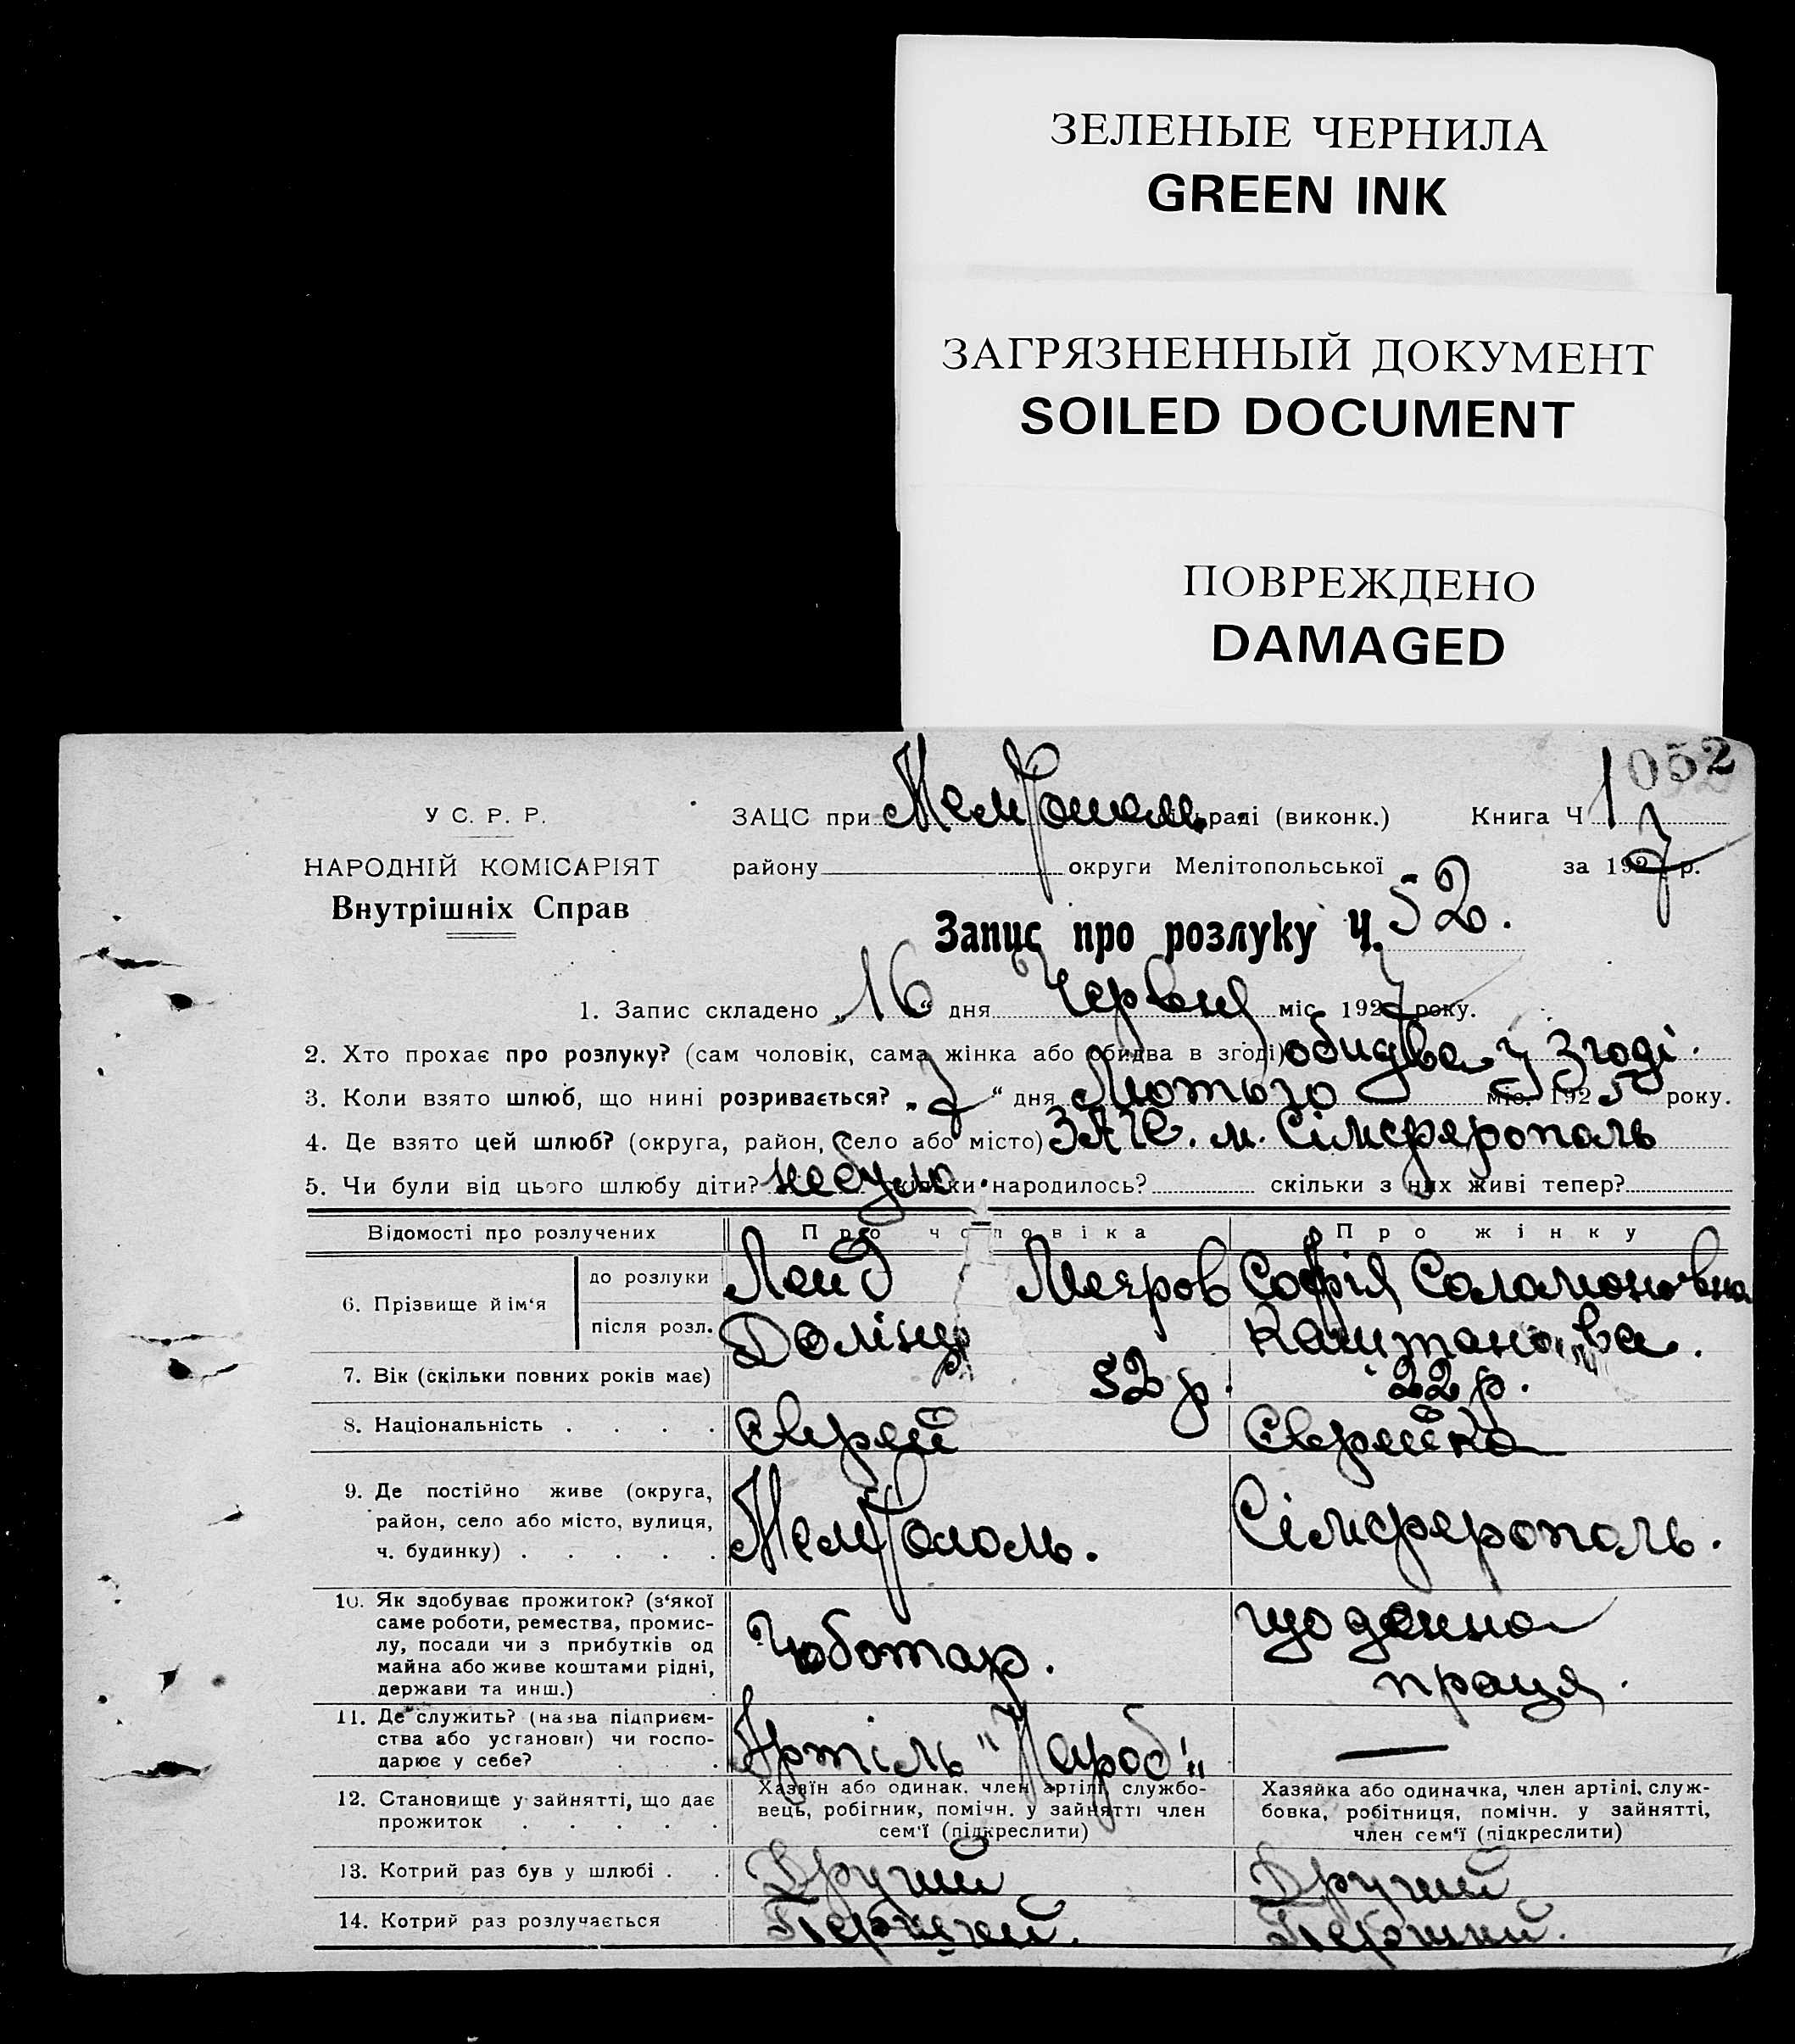 ЗЕЛЕНЫЕ ЧЕРНИЛА
GREEN INK
ЗАГРЯЗНЕННЫЙ ДОКУМЕНТ
SOILED DOCUMENT
ПОВРЕЖДЕНО
DAMAGED
1052
У С. Р. Р.
ЗАЦС при раді (виконк.) Книга Ч 1
НАРОДНІЙ КОМІСАРІЯТ
району округи Мелітопольської за 1927 р.
Внутрішніх Справ
Запис про розлуку Ч. 52.
1. Запис складено „16“ дня Червня міс. 1927 року.
2. Хто прохає про розлуку? (сам чоловік, сама жінка або обидва в згоді) обидва у згоді.
3. Коли взято шлюб, що нині розривається? „7“ дня Лютого міс. 1925 року.
4. Де взято цей шлюб? (округа, район, село або місто) ЗАГС. м. Сімферополь
5. Чи були від цього шлюбу діти? небуло. скільки народилось? скільки з них живі тепер?
Відомості про розлучених Про чоловіка Про жінку
6. Прізвище й ім‘я
до розлуки
Меяров Софія Соламоновна
після розл.
Каштанова.
7. Вік (скільки повних років має) 52 р. 22 р.
8. Національність . . . . Єврей Єврейка
9. Де постійно живе (округа,
район, село або місто, вулиця,
ч. будинку) . . . . .
Мелітополь. Сімферополь.
10. Як здобуває прожиток? (з‘якої
саме роботи, ремества, промис-
лу, посади чи з прибутків од
майна або живе коштами рідні,
держави та инш.)
Чоботар. щоденна
праця.
11. Де служить? (назва підприєм-
ства або установи) чи госпо-
дарює у себе?
Артіль —
12. Становище у зайнятті, що дає
прожиток . . . . .
Хазяїн або одинак. член артілі, службо-
вець, робітник, помічн. у зайнятті член
сем‘ї (підкреслити)
Хазяйка або одиначка, член артілі, служ-
бовка, робітниця, помічн. у зайнятті,
член сем‘ї (підкреслити)
13. Котрий раз був у шлюбі . . Другий Другий
14. Котрий раз розлучається Первший. Первший.